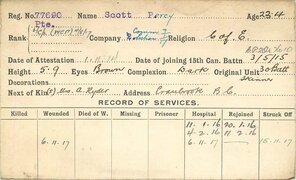 Reg. No. 77690 Scott Percy Age 22-4
Pte.
Rank Company Religion C of E.
Date of Attestation Date of joining 15th Can. Battn. 3/5/15
Height 5-9 Eyes Brown Complexion Dark Original Unit 30 Batt
Decorations
Next of Kin Mrs. A. Ryder Address Cranbrook B.C.
RECORD OF SERVICES.
Killed Wounded Died of W. Missing Prisoner Hospital Rejoined Struck Off
11-1-16 20-1-16
4-2-16 11-2-16
6-11-17 6-11-17 15-11-17